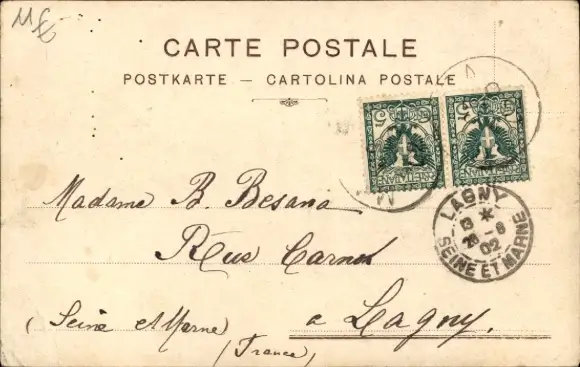 CARTE POSTALE
POSTKARTE — CARTOLINA POSTALE
Madame B. Besana
Rue Carnot
a Lagny.
(Seine et Marne)
(France)
LAGNY
SEINE ET MARNE
26 - 8
02